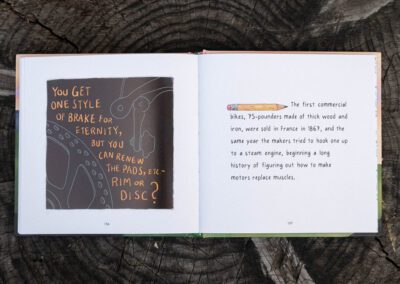 YOU GET
ONE STYLE
OF BRAKE FOR
ETERNITY,
BUT YOU
CAN RENEW
THE PADS, ETC–
RIM OR
DISC?
The first commercial
bikes, 75-pounders made of thick wood and
iron, were sold in France in 1867, and the
same year the makers tried to hook one up
to a steam engine, beginning a long
history of figuring out how to make
motors replace muscles.